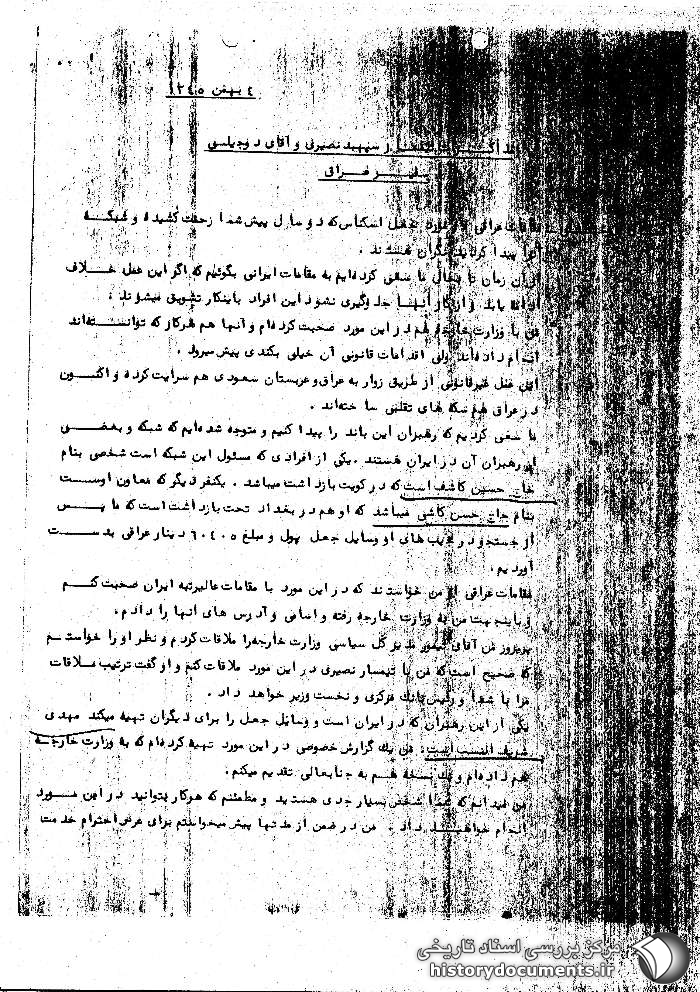 ٤ بهمن ١٣٤٥
سپهبد نصیری و آقای دوجیلی
سفیر عراق
مقامات عراقی در مورد جعل اسکناس که دو سال پیش شما زحمت کشیده و شبکه
پیدا کردید نگران هستند .
از آن زمان تا بحال ما سعی کرده‌ایم به مقامات ایرانی بگوئیم که اگر این عمل خلاف
ادامه یابد و از کار آنها جلوگیری نشود این افراد باینکار تشویق میشوند .
من با وزارت خارجه هم در این مورد صحبت کرده‌ام و آنها هم هر کار که توانسته‌اند
انجام داده‌اند ولی اقدامات قانونی آن خیلی بکندی پیش میرود .
این عمل غیرقانونی از طریق زوار به عراق و عربستان سعودی هم سرایت کرده و اکنون
در عراق هم سکه های تقلبی ساخته‌اند .
ما سعی کردیم که رهبران این باند را پیدا کنیم و متوجه شده‌ایم که شبکه و بعضی
از رهبران آن در ایران هستند . یکی از افرادی که مسئول این شبکه است شخصی بنام
حاج حسین کاشف است که در کویت بازداشت میباشد . یکنفر دیگر که معاون اوست
بنام حاج حسن کاشی میباشد که او هم در بغداد تحت بازداشت است که ما پس
از جستجو در جیب‌های او وسایل جعل پول و مبلغ ٦٠٤٠٥ دینار عراقی بدست
آوردیم .
مقامات عراقی از من خواستند که در این مورد با مقامات عالیرتبه ایران صحبت کنم
و باینجهت من به وزارت خارجه رفته و اسامی و آدرس های آنها را دادم .
پریروز من آقای تیمور مدیر کل سیاسی وزارت خارجه را ملاقات کردم و نظر او را خواستم
که صحیح است که من با تیمسار نصیری در این مورد ملاقات کنم و او گفت ترتیب ملاقات
مرا با شما و رئیس بانک مرکزی و نخست وزیر خواهد داد .
یکی از این رهبران که در ایران است و وسایل جعل را برای دیگران تهیه میکند مهدی
شریف النسب است . من یک گزارش خصوصی در این مورد تهیه کرده‌ام که به وزارت خارجه
هم داده‌ام و یک نسخه هم به جنابعالی تقدیم میکنم .
من میدانم که شما شخص بسیار جدی هستید و مطمئنم که هر کار بتوانید در این مورد
انجام خواهید داد . من در ضمن از مدتها پیش میخواستم برای عرض احترام خدمت
مرکز بررسی اسناد تاریخی
historydocuments.ir